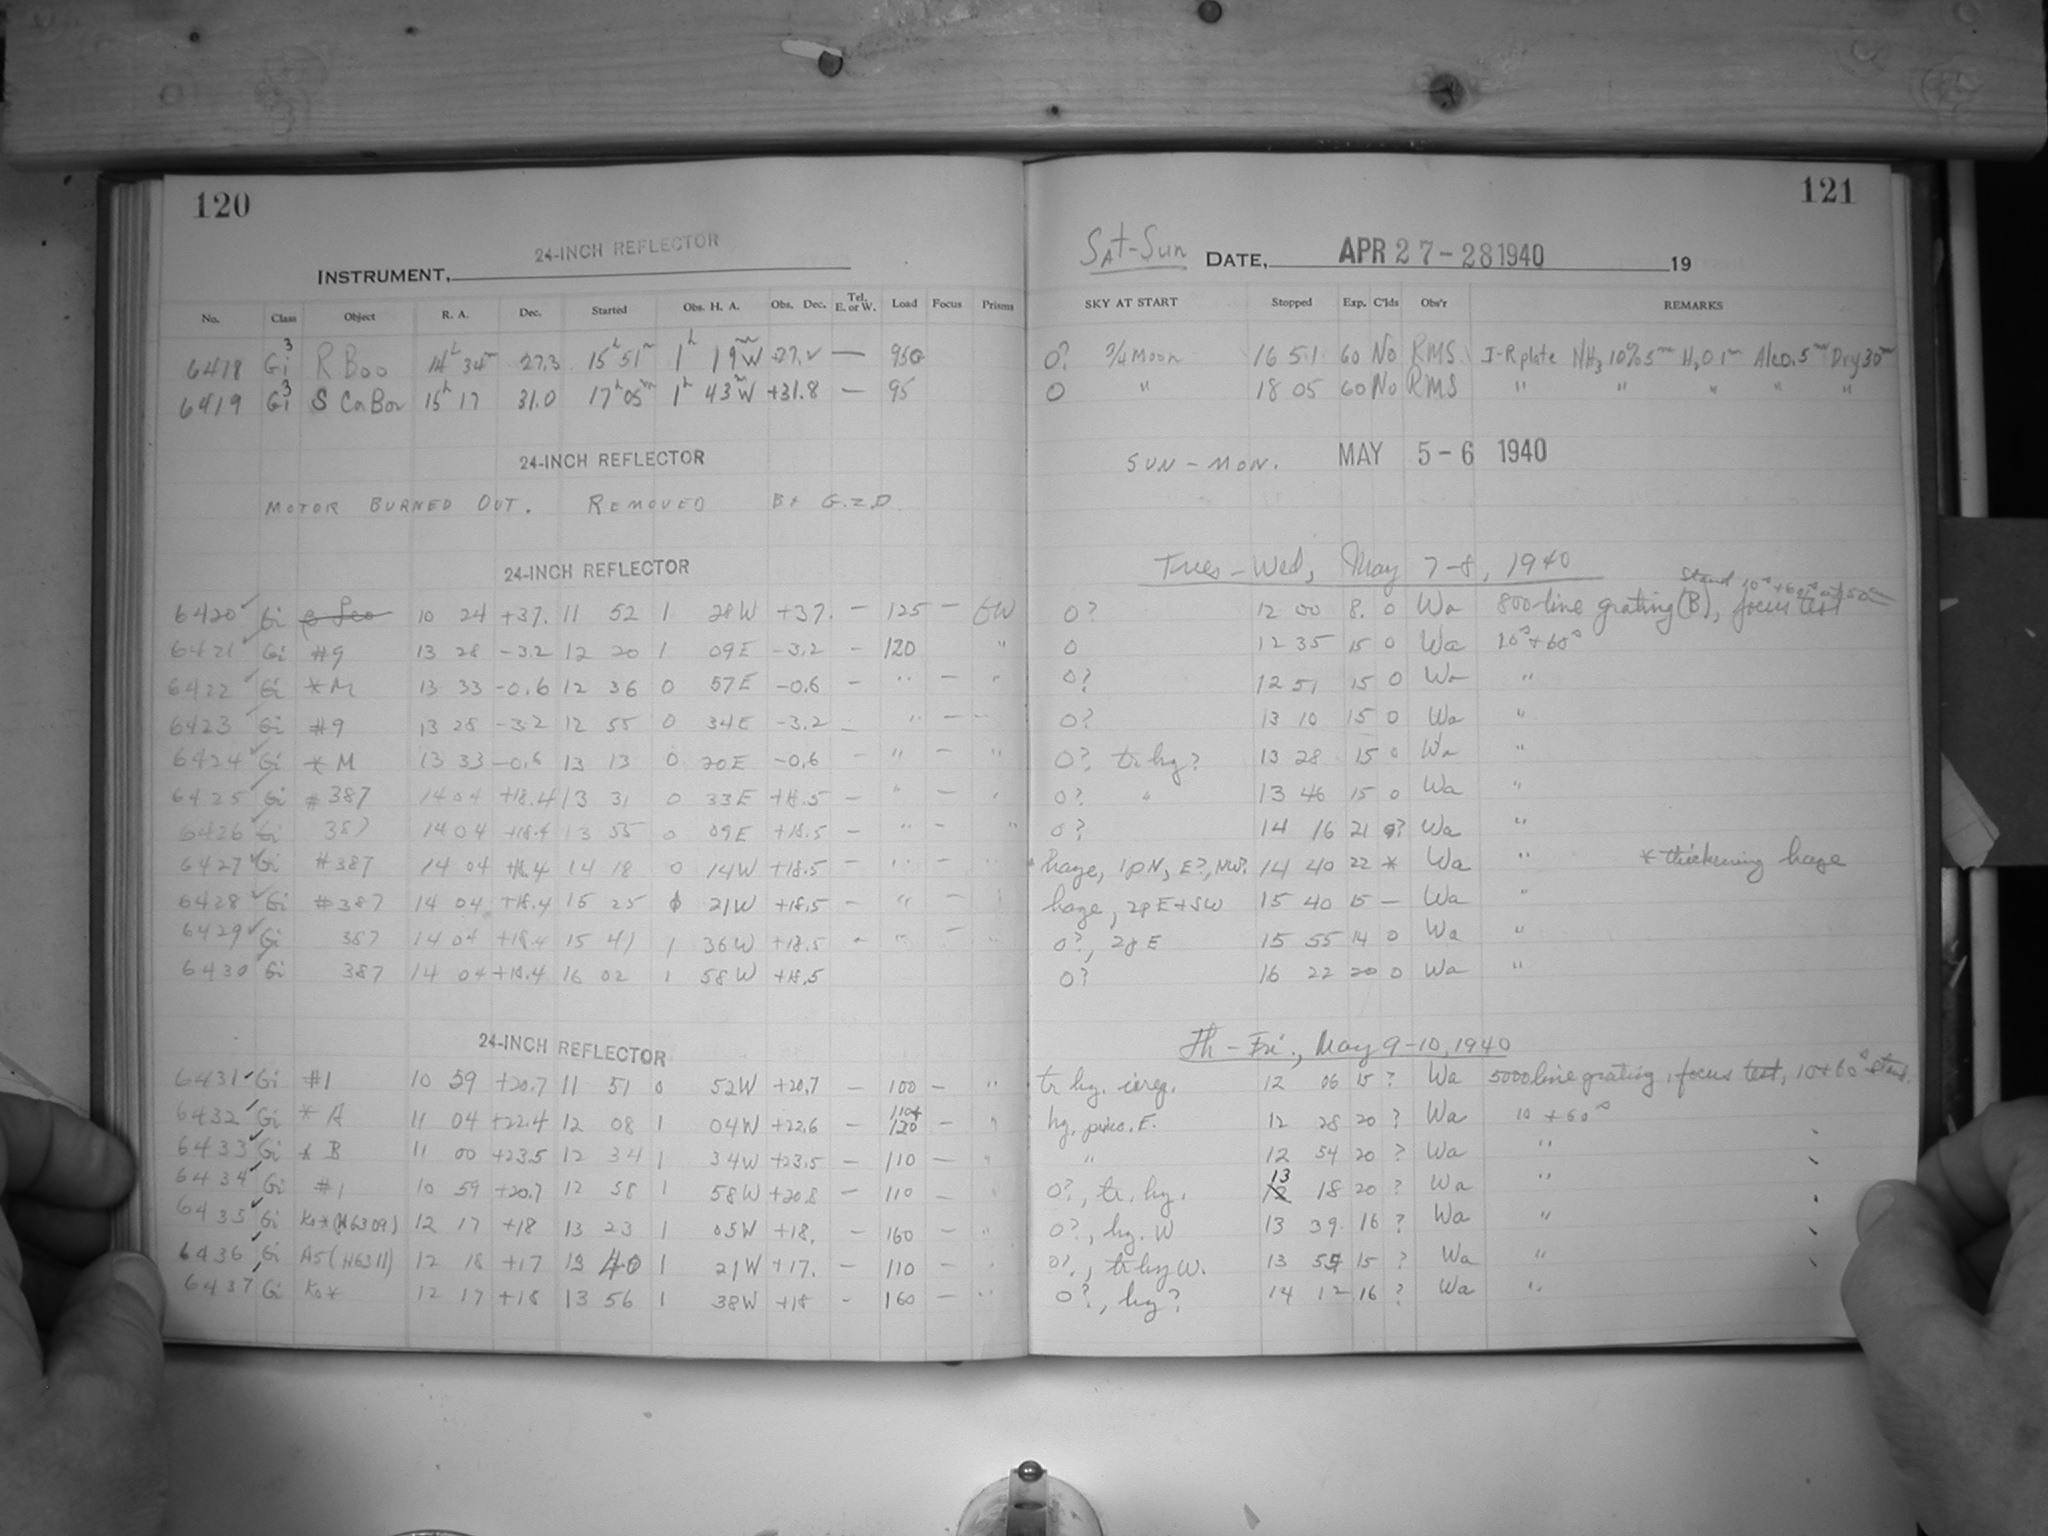 120
24-INCH REFLECTOR
INSTRUMENT,
No. Class Object R. A. Dec. Started Obs. H. A. Obs. Dec. Tel. E. or W. Load Focus Prisms
6418 Gi3 R Boo 14h 34m 27.3 15h 51m 1h 19m W —
6419 Gi3 S 15h 17 31.0 17h 05m 1h 43m W +31.8 — 95
24-INCH REFLECTOR
MOTOR BURNED OUT. REMOVED
24-INCH REFLECTOR
6420 Gi 10 24 +37. 11 52 1 28W +37. — 125 — GW
6421 Gi #9 13 28 -3.2 12 20 1 09E -3.2 — 120 "
6422 Gi *M 13 33 -0.6 12 36 0 57E -0.6 — " — "
6423 Gi #9 13 28 -3.2 12 55 0 34E -3.2 — " — "
6424 Gi *M 13 33 -0.6 13 13 0 20E -0.6 — " — "
6425 Gi #387 14 04 +18.4 13 31 0 33E +18.5 — " — "
6426 Gi 387 14 04 +18.4 13 55 0 09E +18.5 — " — "
6427 Gi #387 14 04 +18.4 14 18 0 14W +18.5 — " — "
6428 Gi #387 14 04 +18.4 15 25 21W +18.5 — " — "
6429 Gi 387 14 04 +18.4 15 41 1 36W +18.5 — " — "
6430 Gi 387 14 04 +18.4 16 02 1 58W +18.5
24-INCH REFLECTOR
6431 Gi #1 10 59 +20.7 11 51 0 52W +20.7 — 100 — "
6432 Gi *A 11 04 +22.4 12 08 1 04W +22.6 — 110+ 120 — "
6433 Gi *B 11 00 +23.5 12 34 1 34W +23.5 — 110 — "
6434 Gi #1 10 59 +20.7 12 58 1 58W +20.8 — 110 — "
6435 Gi K0*(H6309) 12 17 +18 13 23 1 05W +18. — 160 — "
6436 Gi A5(H6311) 12 18 +17 13 40 1 21W +17. — 110 — "
6437 Gi K0* 12 17 +18 13 56 1 38W +18 — 160 — "
121
Sat-Sun DATE, APR 27-28 1940 19
SKY AT START Stopped Exp. C'lds Obs'r REMARKS
0? 3/4 Moon 16 51 60 No RMS I-R plate NH3 10% 5m H2O 1m Alco. 5m Dry 30m
0 " 18 05 60 No RMS " " " " "
SUN-MON. MAY 5-6 1940
Tues-Wed, May 7-8, 1940
0? 12 00 8. 0 Wa 800-line grating (B), focus test
0 12 35 15 0 Wa 10s+60s
0? 12 51 15 0 Wa "
0? 13 10 15 0 Wa "
0? tr hy? 13 28 15 0 Wa "
0? " 13 46 15 0 Wa "
0? 14 16 21 0? Wa "
* haze, 1pN, E?, NW? 14 40 22 * Wa " * thickening haze
haze, 2pE+SW 15 40 15 — Wa "
0?, 2pE 15 55 14 0 Wa "
0? 16 22 20 0 Wa "
Th-Fri., May 9-10, 1940
tr hy. irreg. 12 06 15 ? Wa 5000 line grating, focus test, 10+60s stand.
hy. E. 12 28 20 ? Wa 10+60s
" 12 54 20 ? Wa "
0?, tr. hy. 13 18 20 ? Wa "
0?, hy. W 13 39 16 ? Wa "
0?, tr hy W. 13 55 15 ? Wa "
0?, hy? 14 12 16 ? Wa "